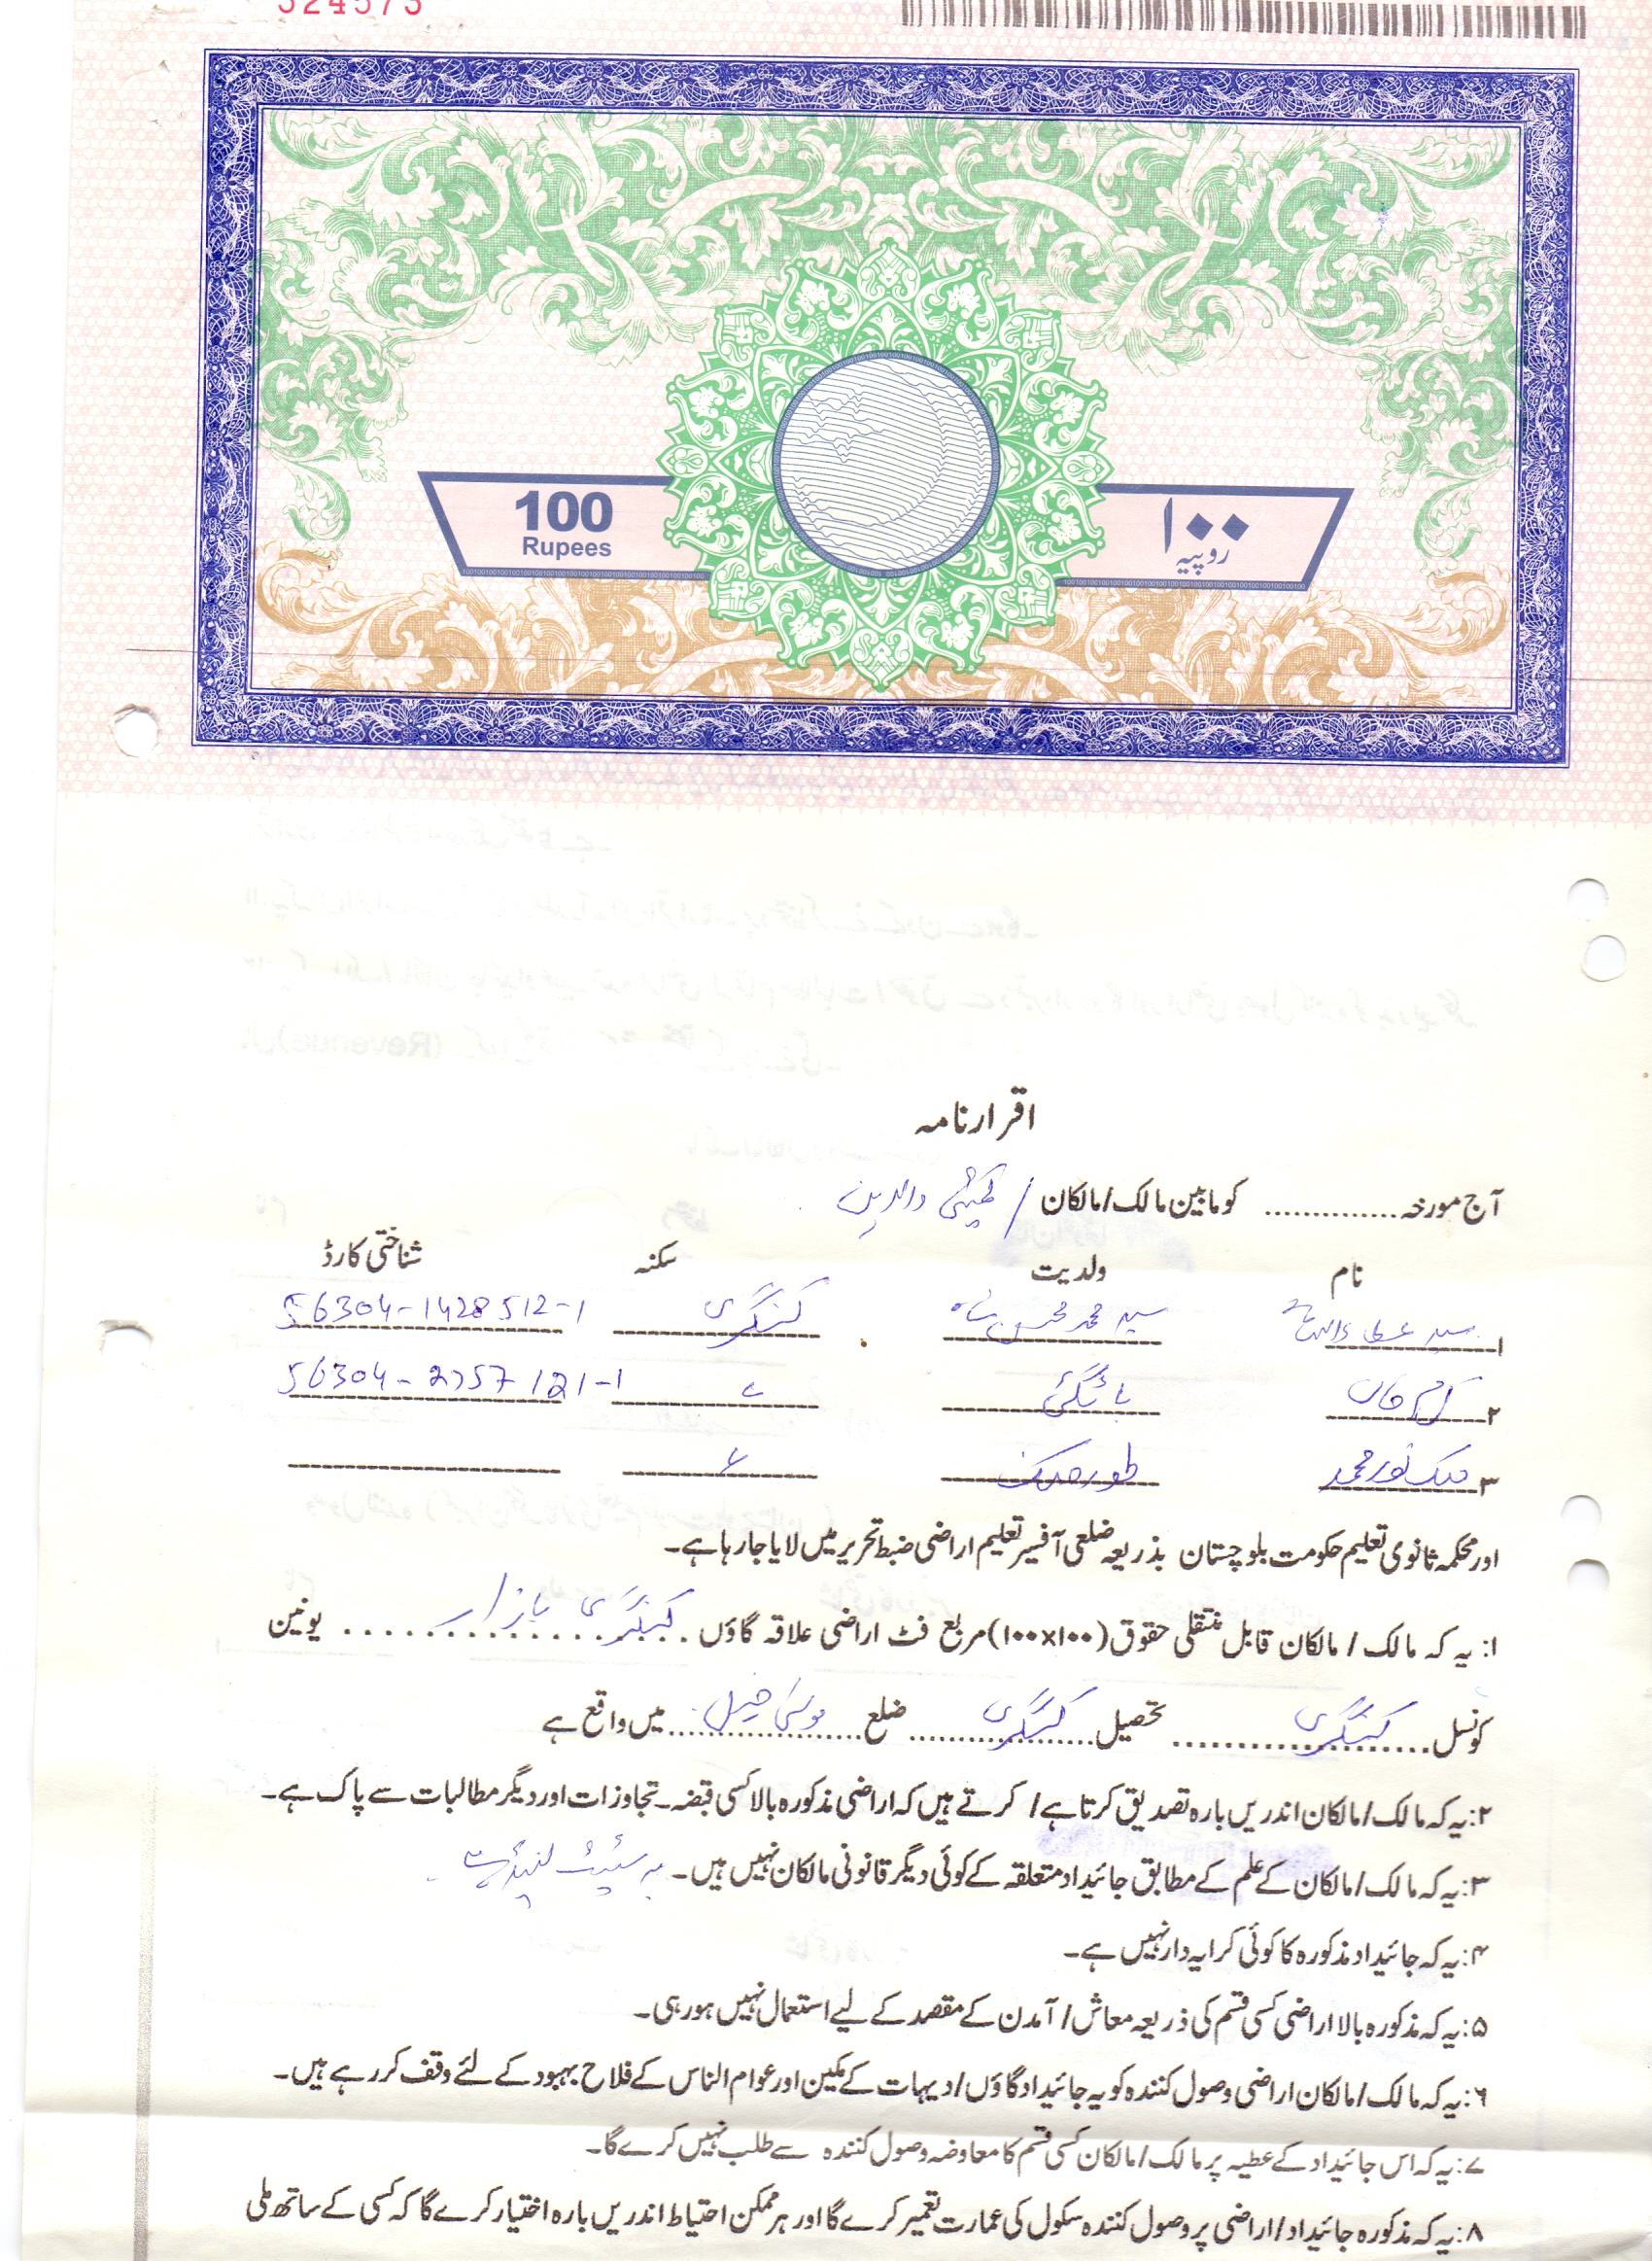 324573
100
Rupees
۱۰۰
روپیہ
اقرارنامہ
آج مورخہ .............. کو مابین مالک/مالکان / کمیٹی والدین
نام ولدیت سکنہ شناختی کارڈ
۱ سید عطاء اللہ شاہ سید محمد محسن شاہ کنگری 56304-1428512-1
۲ خان 56304-2757121-1
۳ ملک نور محمد طور
اور محکمہ ثانوی تعلیم حکومت بلوچستان بذریعہ ضلعی آفیسر تعلیم اراضی ضبط تحریر میں لایا جا رہا ہے۔
۱: یہ کہ مالک / مالکان قابل منتقلی حقوق (۱۰۰x۱۰۰) مربع فٹ اراضی علاقہ گاؤں کنگری بازار یونین
کونسل کنگری تحصیل کنگری ضلع موسیٰ خیل میں واقع ہے
۲: یہ کہ مالک/مالکان اندریں بارہ تصدیق کرتا ہے / کرتے ہیں کہ اراضی مذکورہ بالا کسی قبضہ۔ تجاوزات اور دیگر مطالبات سے پاک ہے۔
۳: یہ کہ مالک/مالکان کے علم کے مطابق جائیداد متعلقہ کے کوئی دیگر قانونی مالکان نہیں ہیں۔ یہ سٹیٹ لینڈ ہے۔
۴: یہ کہ جائیداد مذکورہ کا کوئی کرایہ دار نہیں ہے۔
۵: یہ کہ مذکورہ بالا اراضی کسی قسم کی ذریعہ معاش/ آمدن کے مقصد کے لیے استعمال نہیں ہو رہی۔
۶: یہ کہ مالک/مالکان اراضی وصول کنندہ کو یہ جائیداد گاؤں/دیہات کے مکین اور عوام الناس کے فلاح بہبود کے لئے وقف کر رہے ہیں۔
۷: یہ کہ اس جائیداد کے عطیہ پر مالک/مالکان کسی قسم کا معاوضہ وصول کنندہ سے طلب نہیں کرے گا۔
۸: یہ کہ مذکورہ جائیداد/اراضی پر وصول کنندہ سکول کی عمارت تعمیر کرے گا اور ہر ممکن احتیاط اندریں بارہ اختیار کرے گا کہ کسی کے ساتھ ملی